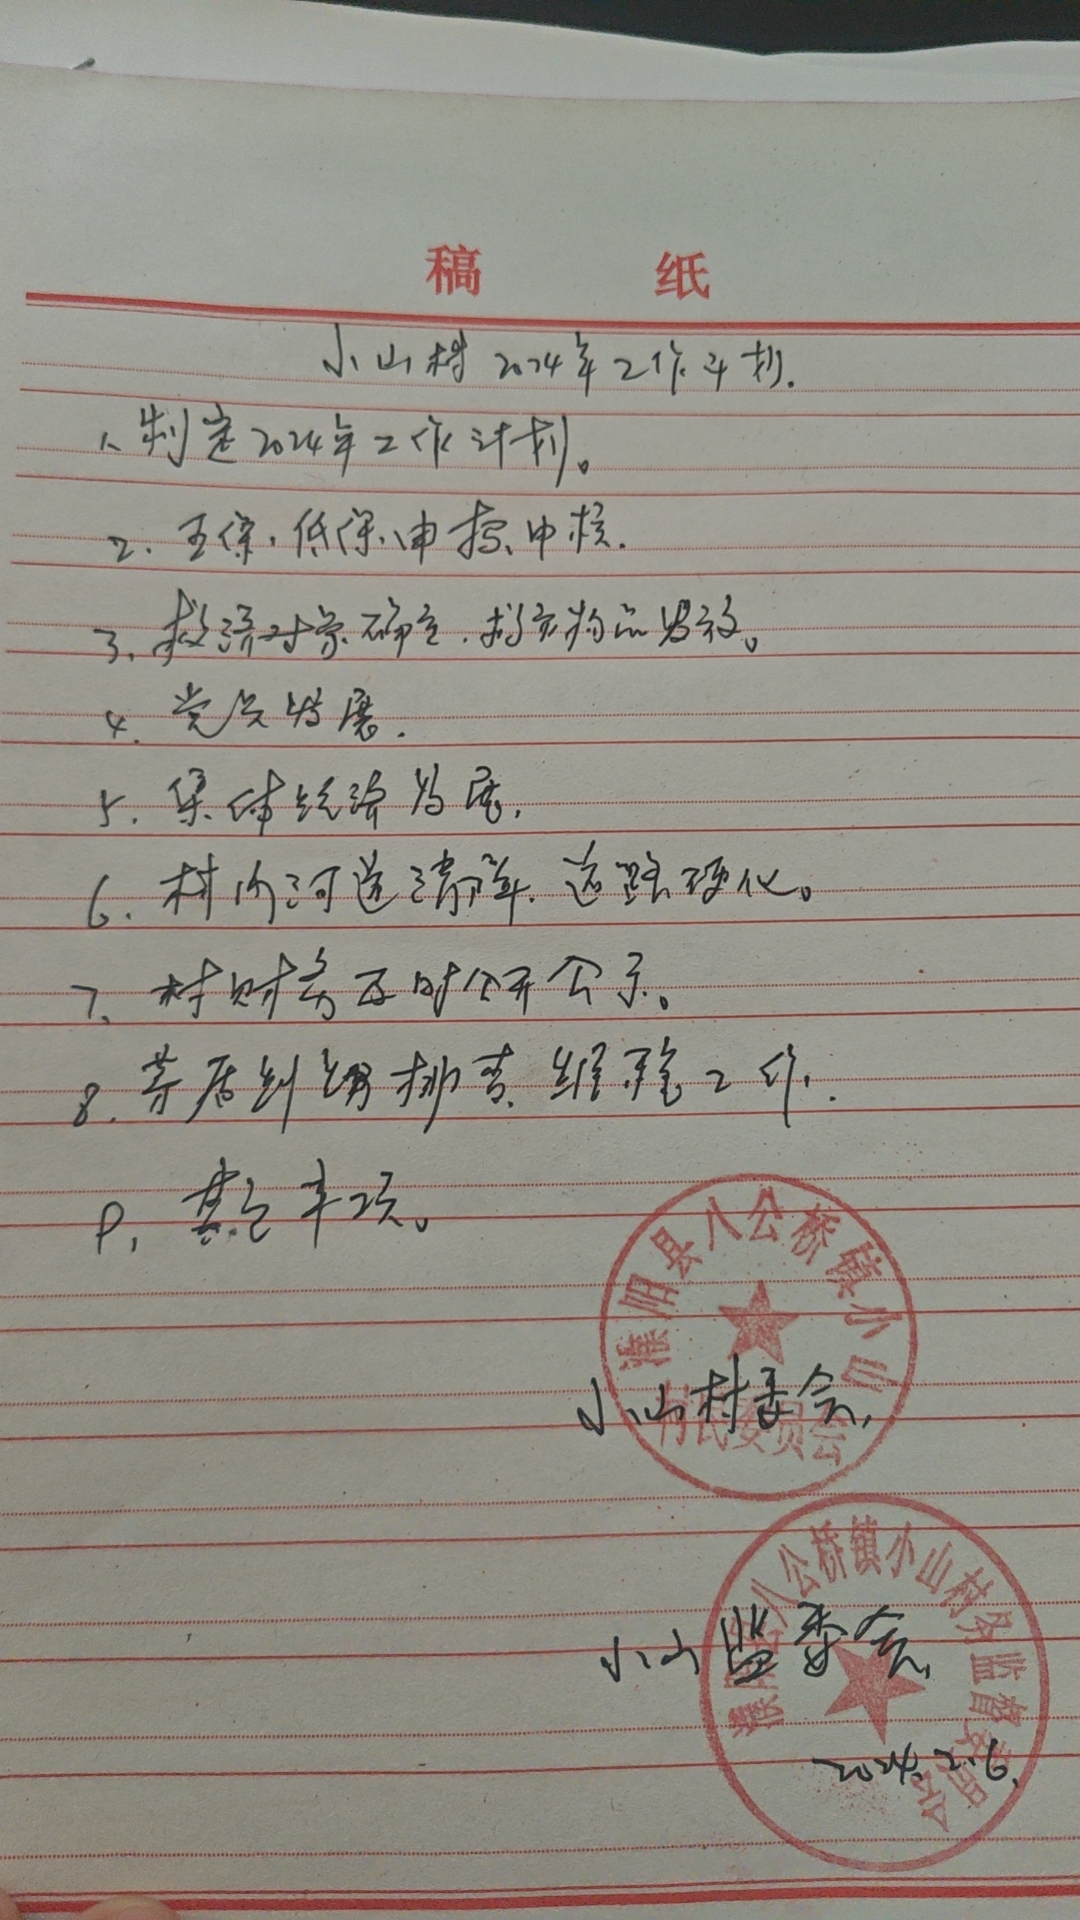 稿 纸
小山村2024年工作计划.
1、制定2024年工作计划。
2. 五保、低保、申报、审核.
3、救济对象确定、救灾物品发放。
4. 党员发展.
5. 集体经济发展.
6. 村内河道清理、道路硬化。
7、村财务及时公开公示。
8. 矛盾纠纷排查、维稳工作.
9、其它事项。
濮阳县八公桥镇小山
村民委员会
小山村委会,
濮阳县八公桥镇小山村务监督委员会
小山监委会,
2024.2.6.